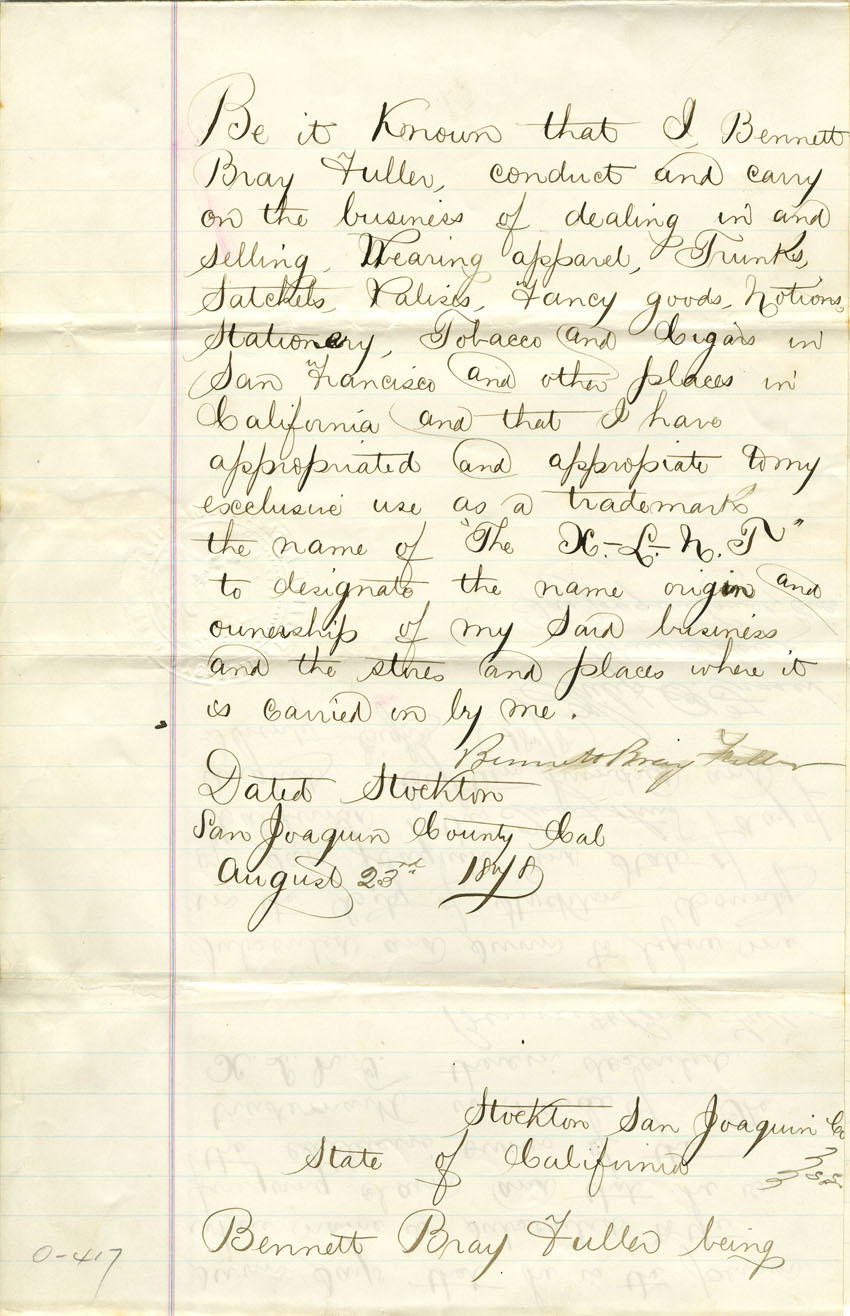 Be it Known that I, Bennett
Bray Fuller, conduct and carry
on the business of dealing in and
selling, Wearing apparel, Trunks,
Satchels, Valises, Fancy goods, Notions,
Stationery, Tobacco and Cigars in
San Francisco and other places in
California and that I have
appropriated and appropiate to my
exclusive use as a trademark
the name of "The X.-L.-N.T"
to designate the name origin and
ownership of my Said business
and the stores and places where it
is carried on by me.
Bennett Bray Fuller
Dated Stockton
San Joaquin County Cal
August 23rd 1878
Stockton San Joaquin Co
State of California } ss
Bennett Bray Fuller being
0-417